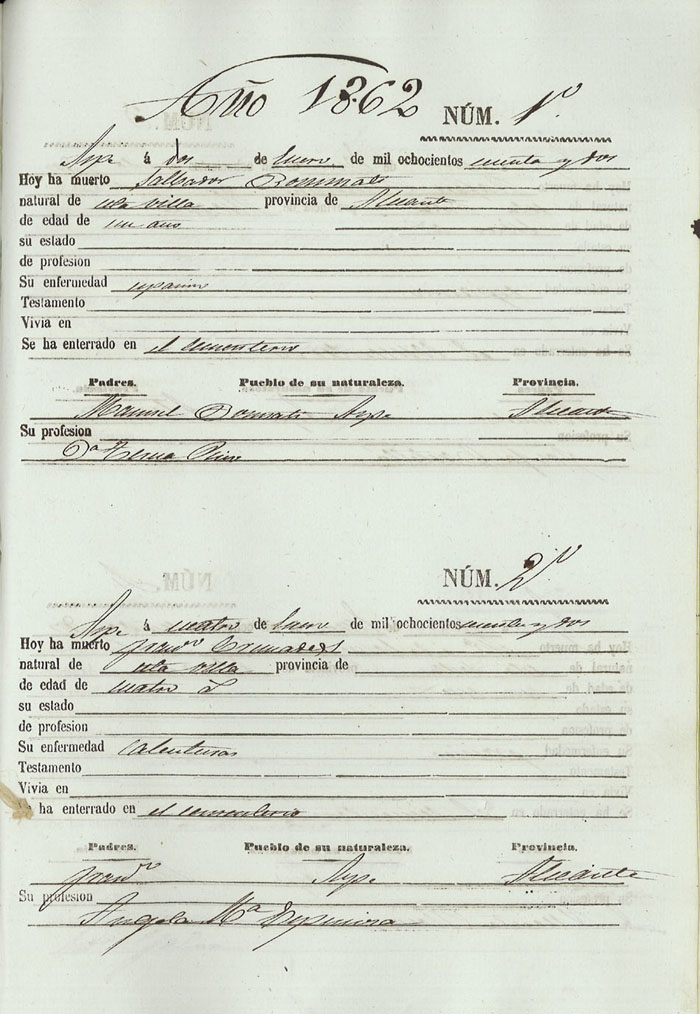 Año 1862 NÚM. 1º
Aspe á dos de Enero de mil ochocientos sesenta y dos
Hoy ha muerto Salvador
natural de esta villa provincia de Alicante
de edad de un año
su estado
de profesion
Su enfermedad
Testamento
Vivia en
Se ha enterrado en el cementerio
Padres. Pueblo de su naturaleza. Provincia.
Manuel Aspe Alicante
Su profesion
Dª Teresa
NÚM. 2º
Aspe á cuatro de Enero de mil ochocientos sesenta y dos
Hoy ha muerto Franco Cremades
natural de esta villa provincia de
de edad de cuatro
su estado
de profesion
Su enfermedad Calenturas
Testamento
Vivia en
Se ha enterrado en el cementerio
Padres. Pueblo de su naturaleza. Provincia.
Franco Aspe Alicante
Su profesion
Angela Mª Espinosa